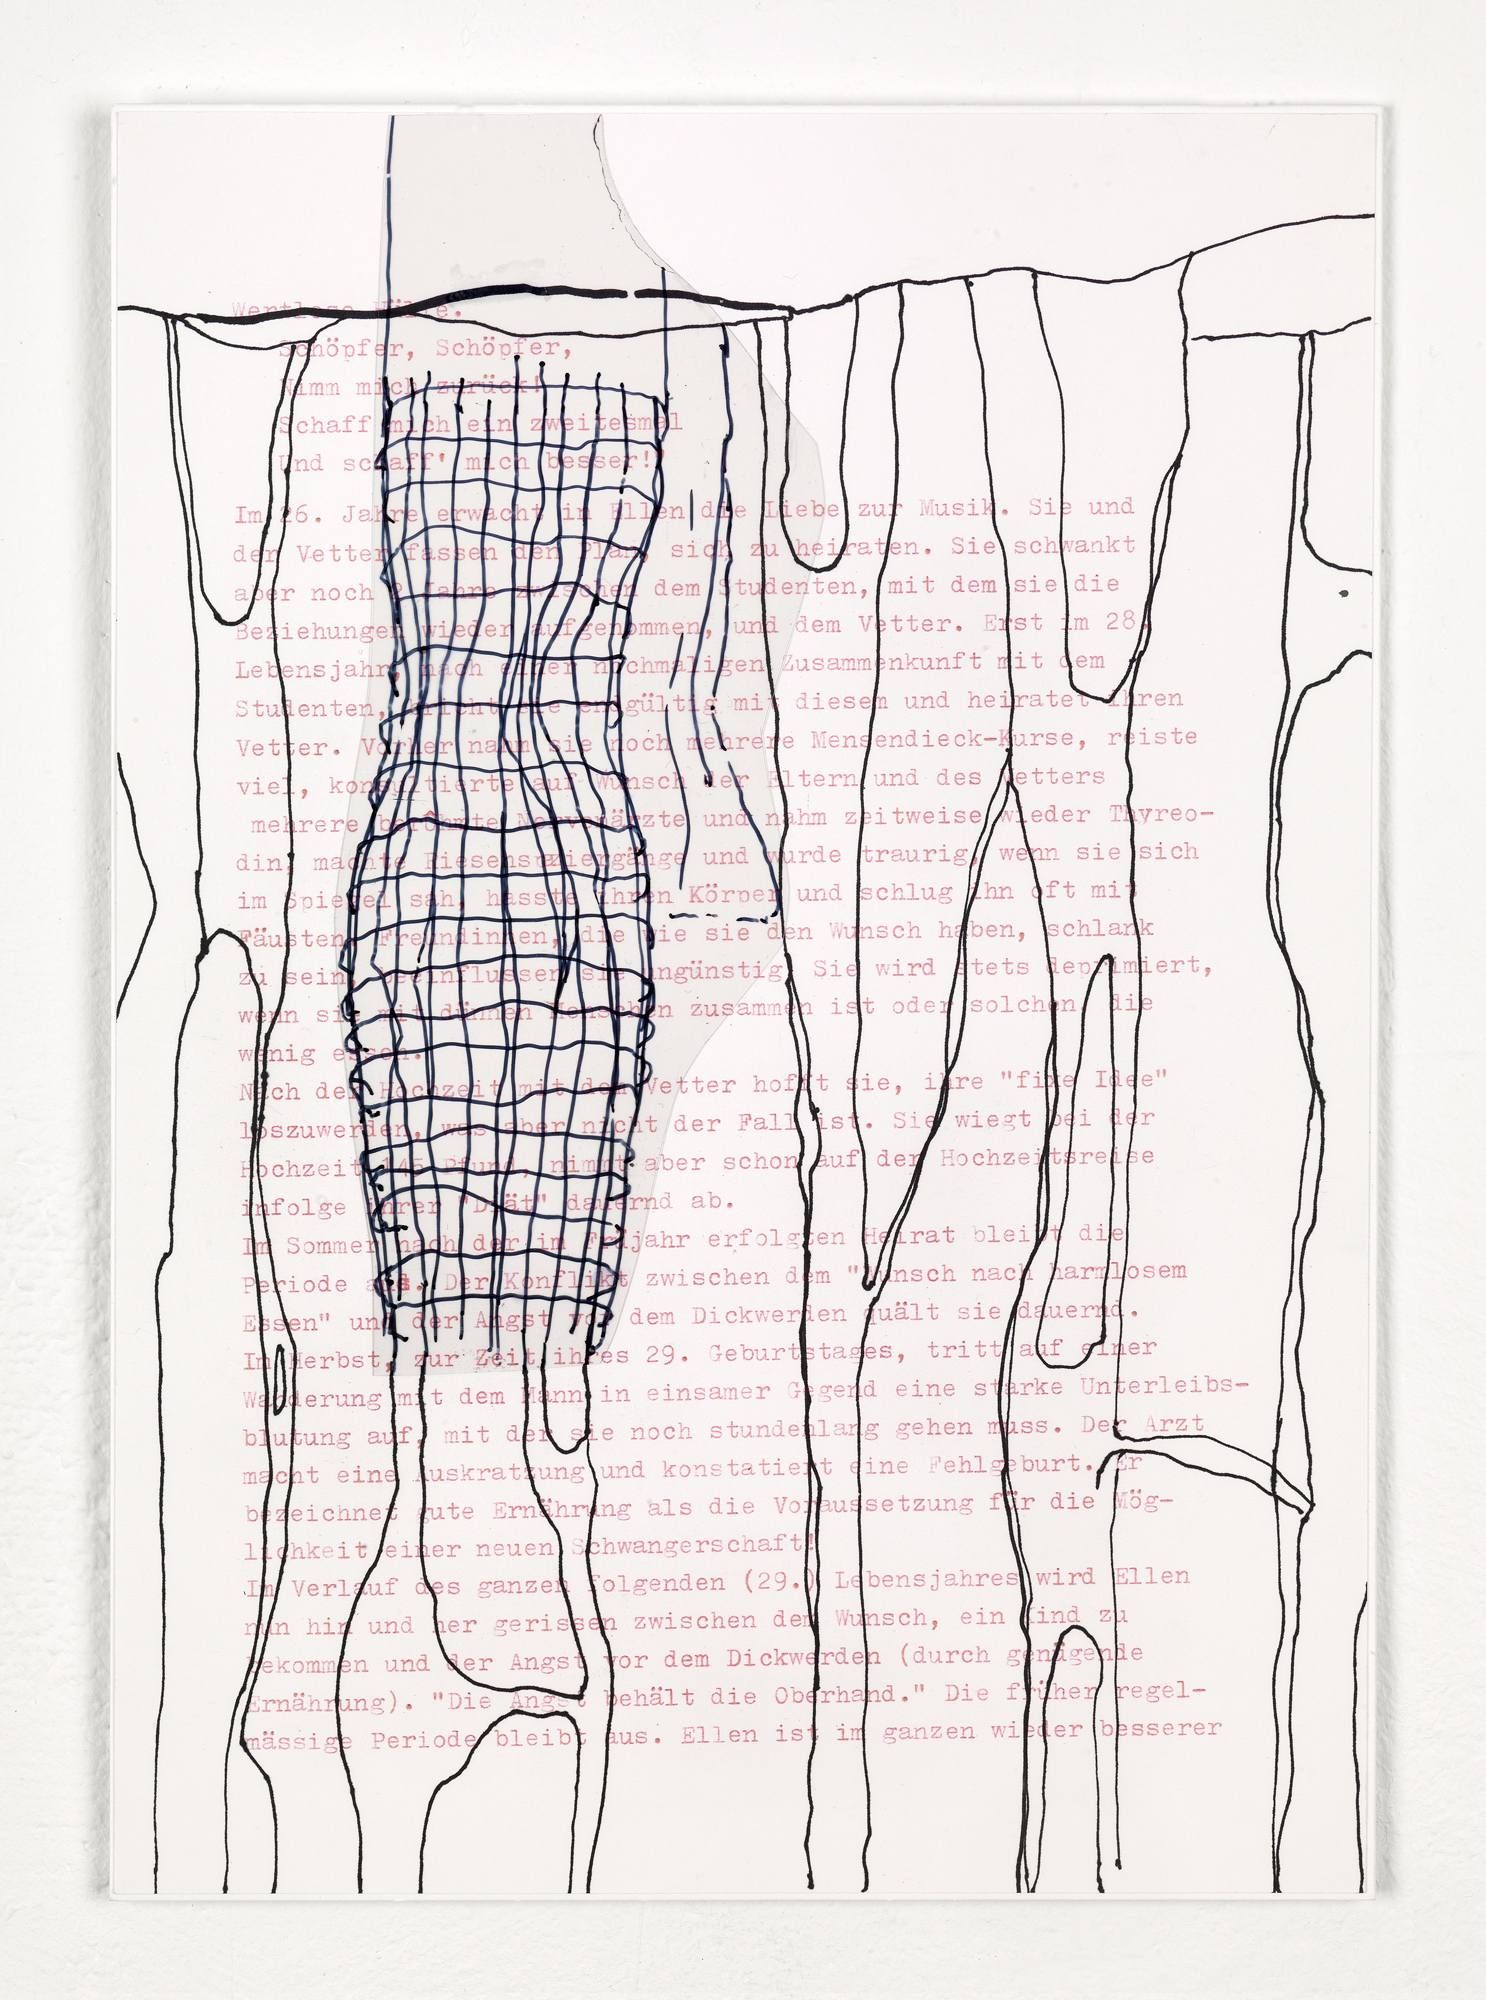 Wertlose Hülle.
Schöpfer, Schöpfer,
Nimm mich zurück!
Schaff mich ein zweitesmal
Und schaff' mich besser!"
Im 26. Jahre erwacht in Ellen die Liebe zur Musik. Sie und
der Vetter fassen den Plan, sich zu heiraten. Sie schwankt
aber noch 2 Jahre zwischen dem Studenten, mit dem sie die
Beziehungen wieder aufgenommen, und dem Vetter. Erst im 28.
Lebensjahr, nach einer nochmaligen Zusammenkunft mit dem
Studenten, bricht sie endgültig mit diesem und heiratet ihren
Vetter. Vorher nahm sie noch mehrere Mensendieck-Kurse, reiste
viel, konsultierte auf Wunsch der Eltern und des Vetters
mehrere berühmte Nervenärzte und nahm zeitweise wieder Thyreo-
din, machte Riesenspaziergänge und wurde traurig, wenn sie sich
im Spiegel sah, hasste ihren Körper und schlug ihn oft mit
Fäusten. Freundinnen, die wie sie den Wunsch haben, schlank
zu sein, beeinflussen sie ungünstig. Sie wird stets deprimiert,
wenn sie mit dünnen Menschen zusammen ist oder solchen, die
wenig essen.
Nach der Hochzeit mit dem Vetter hofft sie, ihre "fixe Idee"
loszuwerden, was aber nicht der Fall ist. Sie wiegt bei der
Hochzeit 145 Pfund, nimmt aber schon auf der Hochzeitsreise
infolge ihrer "Diät" dauernd ab.
Im Sommer nach der im Frühjahr erfolgten Heirat bleibt die
Periode aus. Der Konflikt zwischen dem "Wunsch nach harmlosem
Essen" und der Angst vor dem Dickwerden quält sie dauernd.
Im Herbst, zur Zeit ihres 29. Geburtstages, tritt auf einer
Wanderung mit dem Mann in einsamer Gegend eine starke Unterleibs-
blutung auf, mit der sie noch stundenlang gehen muss. Der Arzt
macht eine Auskratzung und konstatiert eine Fehlgeburt. Er
bezeichnet gute Ernährung als die Voraussetzung für die Mög-
lichkeit einer neuen Schwangerschaft!
Im Verlauf des ganzen folgenden (29.) Lebensjahres wird Ellen
nun hin und her gerissen zwischen dem Wunsch, ein Kind zu
bekommen und der Angst vor dem Dickwerden (durch genügende
Ernährung). "Die Angst behält die Oberhand." Die früher regel-
mässige Periode bleibt aus. Ellen ist im ganzen wieder besserer